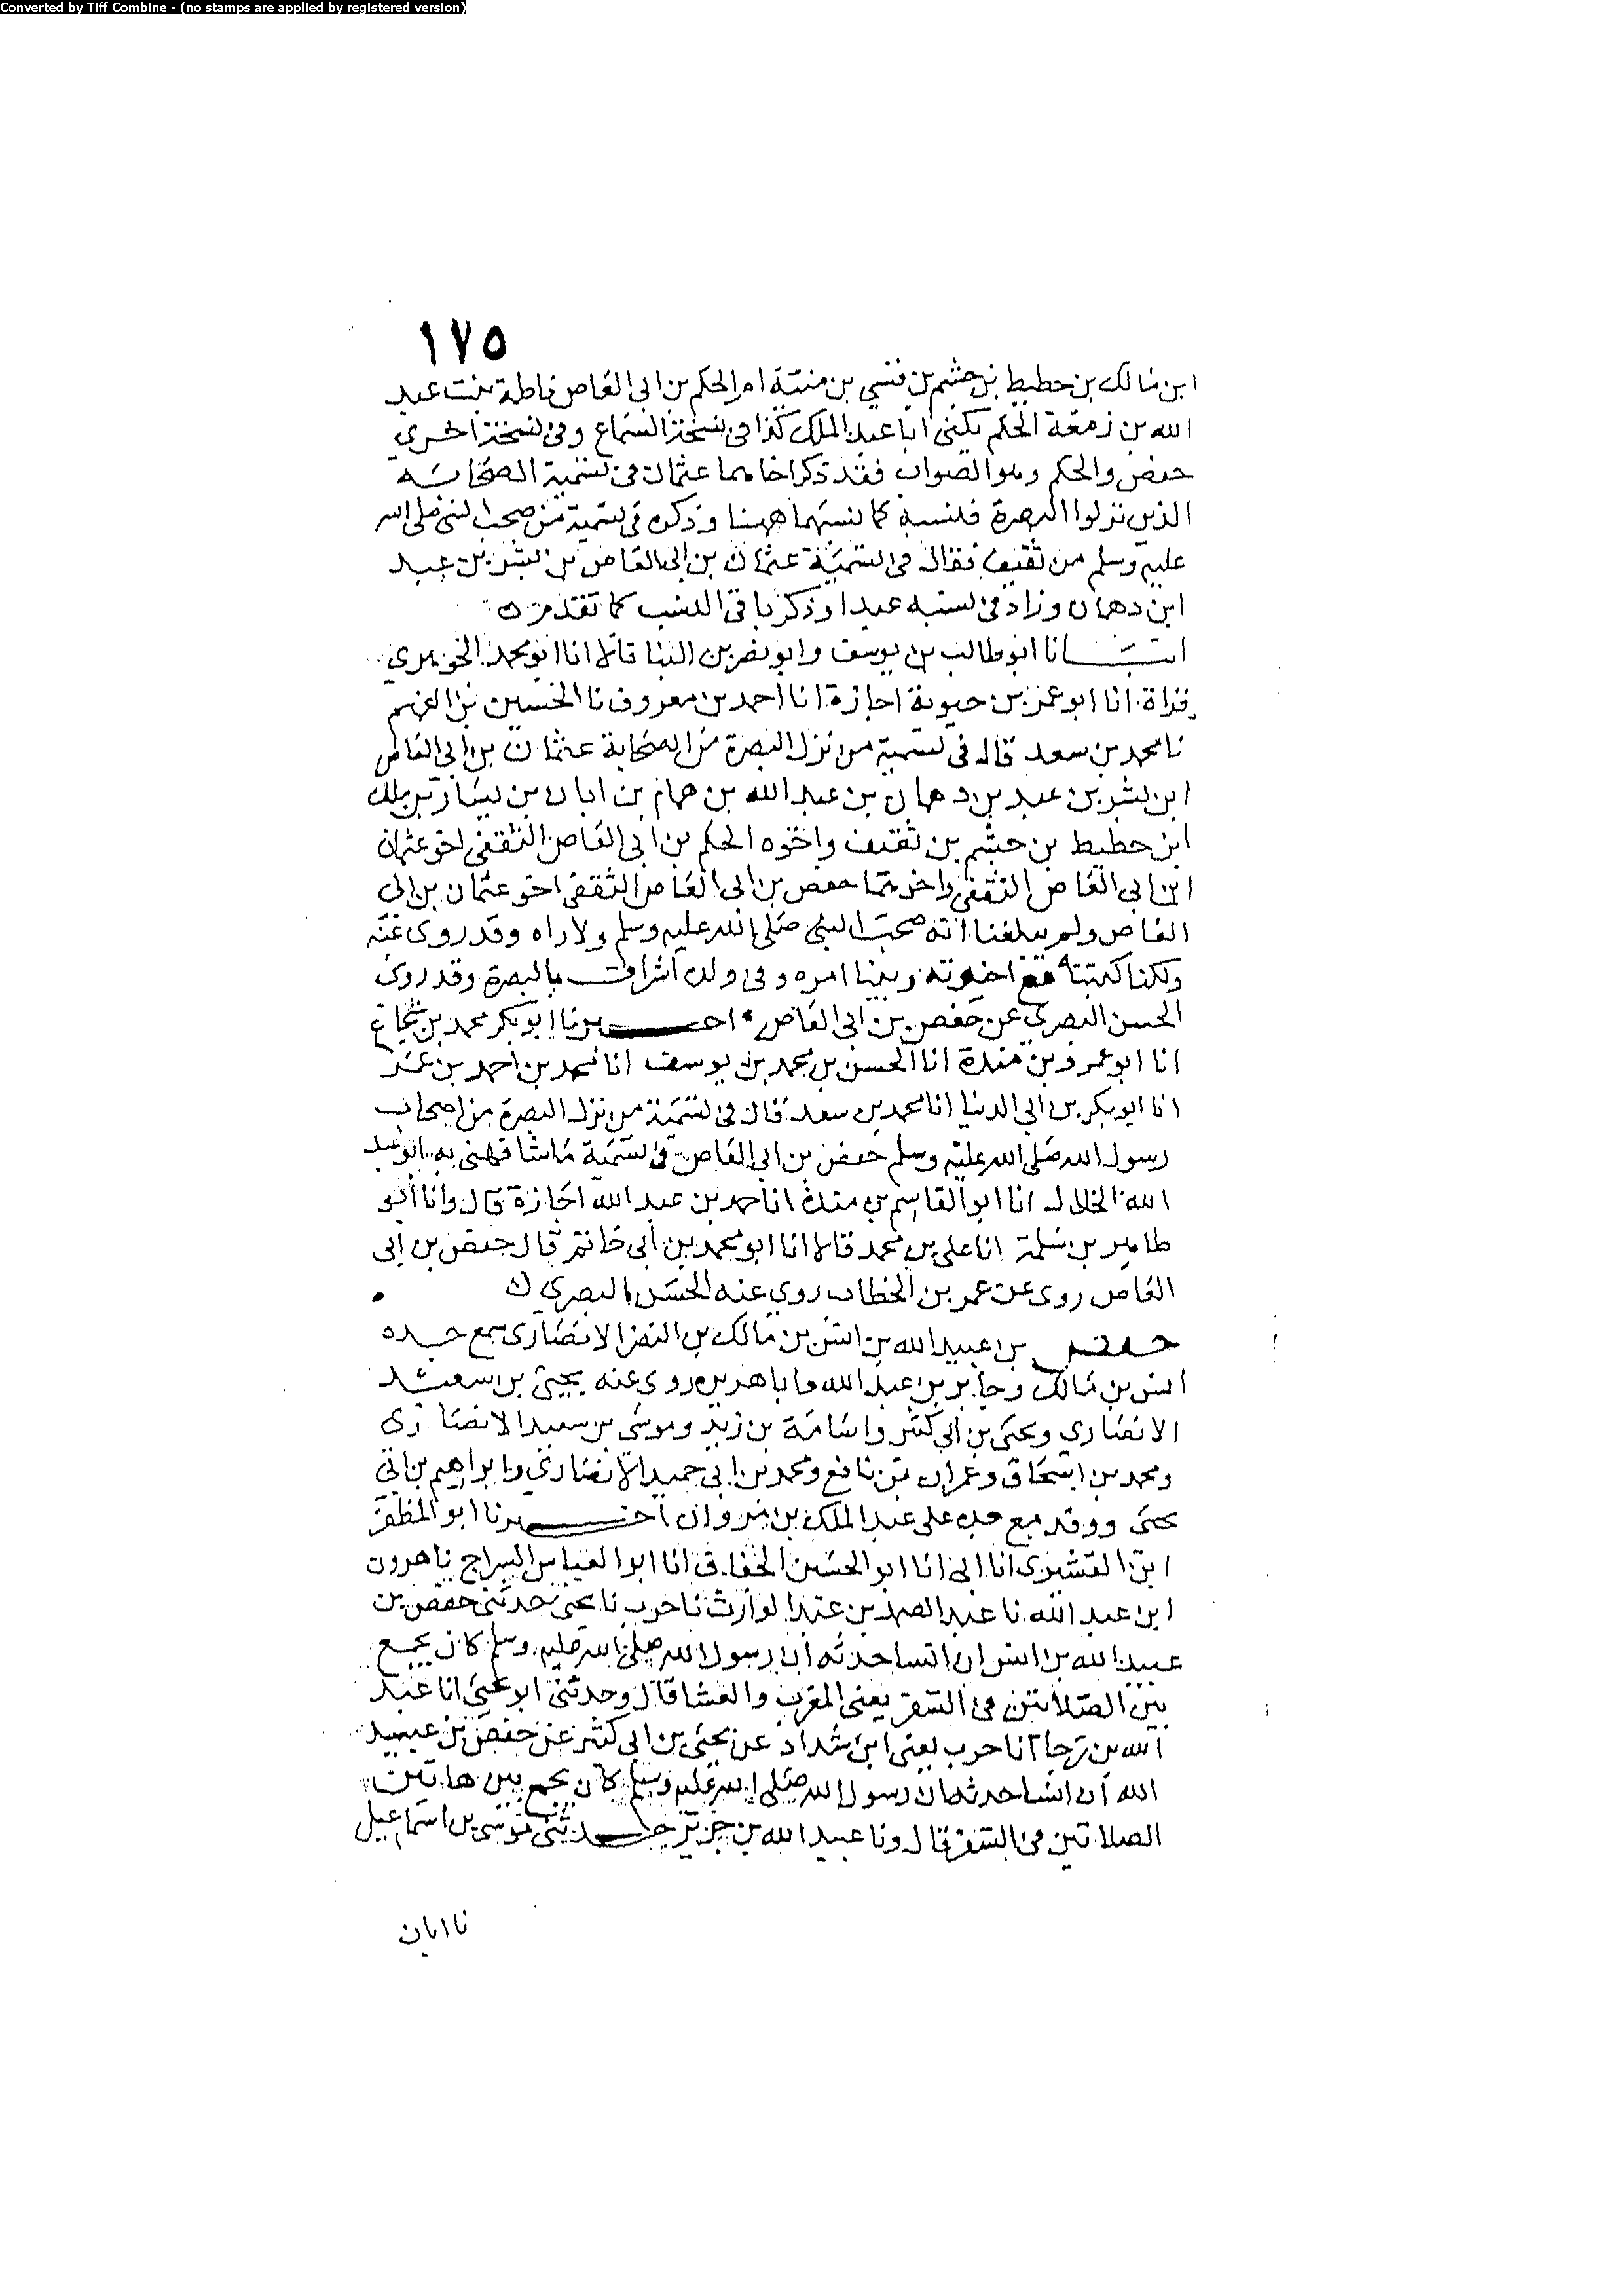 Converted by Tiff Combine - (no stamps are applied by registered version)
١٧٥
ابن مالك بن حطيط بن جشم بن قسي بن منبه ام الحكم بن ابي العاص فاطمة بنت عبد
الله بن زمعة الحكم يكنى ابا عبد الملك كذا في نسخة السماع وفي نسخة اخرى
حفص والحكم وهو الصواب فقد ذكر اخاهما عثمان في تسمية الصحابة
الذين نزلوا البصرة فنسبه كما نسبهما ههنا وذكره في تسمية من صحب النبي صلى الله
عليه وسلم من ثقيف فقال في التسمية عثمان بن ابي العاص بن بشر بن عبد
ابن دهمان وزاد في نسبه عبدا وذكر باقي النسب كما تقدم ه
انبـــانا ابو طالب بن يوسف وابو نصر بن البنا قالا انا ابو محمد الجوهري
قراة انا ابو عمر بن حيوية اجازة انا احمد بن معروف نا الحسين بن الفهم
نا محمد بن سعد قال في تسمية من نزل البصرة من الصحابة عثمان بن ابي العاص
ابن بشر بن عبد بن دهمان بن عبد الله بن همام بن ابان بن يسار بن ملك
ابن حطيط بن جشم بن ثقيف واخوه الحكم بن ابي العاص الثقفي اخو عثمان
ابن ابي العاص الثقفي واخوهما حفص بن ابي العاص الثقفي اخو عثمان بن ابي
العاص ولم يبلغنا انه صحب النبي صلى الله عليه وسلم ولا راه وقد روى عنه
ولكنا كتبناه مع اخوته وبينا امره وفي ولده اشراف بالبصرة وقد روى
الحسن البصري عن حفص بن ابي العاص اخـــبرنا ابو بكر محمد بن شجاع
انا ابو عمرو بن مندة انا الحسن بن محمد بن يوسف انا محمد بن احمد بن عمر
انا ابو بكر بن ابي الدنيا انا محمد بن سعد قال في تسمية من نزل البصرة من اصحاب
رسول الله صلى الله عليه وسلم حفص بن ابي العاص في تسمية ما شافهني به ابو عبد
الله الخلال انا ابو القاسم بن مندة انا حمد بن عبد الله اجازة قال وانا ابو
طاهر بن سلمة انا علي بن محمد قالا انا ابو محمد بن ابي حاتم قال حفص بن ابي
العاص روى عن عمر بن الخطاب روى عنه الحسن البصري ك
حـفص بن عبيد الله بن انس بن مالك بن النضر الانصاري سمع جده
انس بن مالك وجابر بن عبد الله وابا هريرة روى عنه يحيى بن سعيد
الانصاري ويحيى بن ابي كثير واسامة بن زيد وموسى بن سعيد الانصاري
ومحمد بن اسحاق وعمران بن نافع ومحمد بن ابي حميد الانصاري وابراهيم بن ابي
يحيى ووفد مع جده على عبد الملك بن مروان اخـــبرنا ابو المظفر
ابن القشيري انا ابي انا ابو الحسين الخفاف انا ابو العباس السراج نا هرون
ابن عبد الله نا عبد الصمد بن عبد الوارث نا حرب نا يحيى حدثني حفص بن
عبيد الله بن انس ان انسا حدثه ان رسول الله صلى الله عليه وسلم كان يجمع
بين الصلاتين في السفر يعني المغرب والعشا قال وحدثني ابو يحيى انا عبد
الله بن رجا انا حرب يعني ابن شداد عن يحيى بن ابي كثير عن حفص بن عبيد
الله ان انسا حدثه ان رسول الله صلى الله عليه وسلم كان يجمع بين هاتين
الصلاتين في السفر قال ونا عبيد الله بن جرير حـــدثني موسى بن اسماعيل
نا ابان